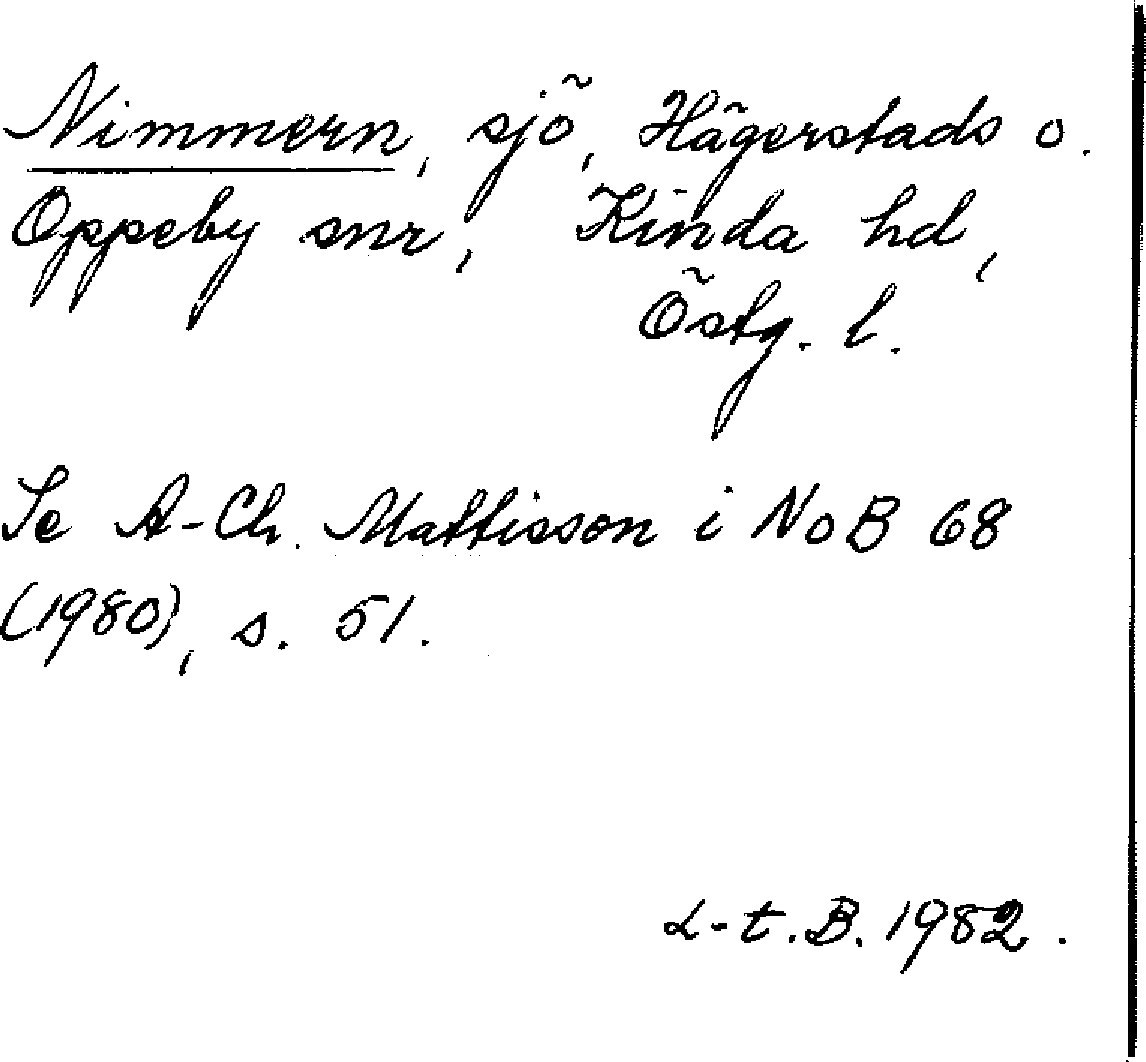 Nimmern, sjö, Hägerstads o.
Oppeby snr, Kinda hd,
Östg. l.
Se A-Ch. Mattisson i NoB 68
(1980), s. 51.
L-t. B. 1982.